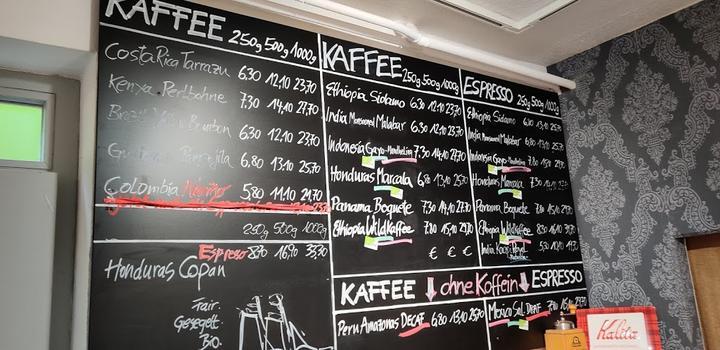 KAFFEE 250g 500g 1000g
Costa Rica Tarrazu 6.30 12.10 23.70
Kenya Perlbohne 7.30 14.10 27.70
Bourbon 6.30 12.10 23.70
6.80 13.10 25.70
Colombia 5.80 11.10 21.70
250g 500g 1000g
Espresso 8.70 16.90 33.30
Honduras Copan
Fair.
Gesegelt.
Bio.
KAFFEE 250g 500g 1000g
Ethiopia Sidamo 6.30 12.10 23.70
India Monsooned Malabar 6.30 12.10 23.70
Indonesia Gayo-Mandheling 7.30 14.10 27.70
Honduras Marcala 6.80 13.10 25.70
Panama Boquete 7.30 14.10 27.70
Ethiopia Wildkaffee 7.80 15.10 29.70
€ € €
ESPRESSO 250g 500g 1000g
Ethiopia Sidamo 6.80 13.10 25.70
India Monsooned Malabar
Indonesia Gayo-Mandheling
Honduras Marcala
Panama Boquete
Ethiopia Wildkaffee
India
KAFFEE ↓ ohne Koffein ↓ ESPRESSO
Peru Amazonas DECAF 6.80 13.10 25.70
Mexico Sol DECAF
Kalita